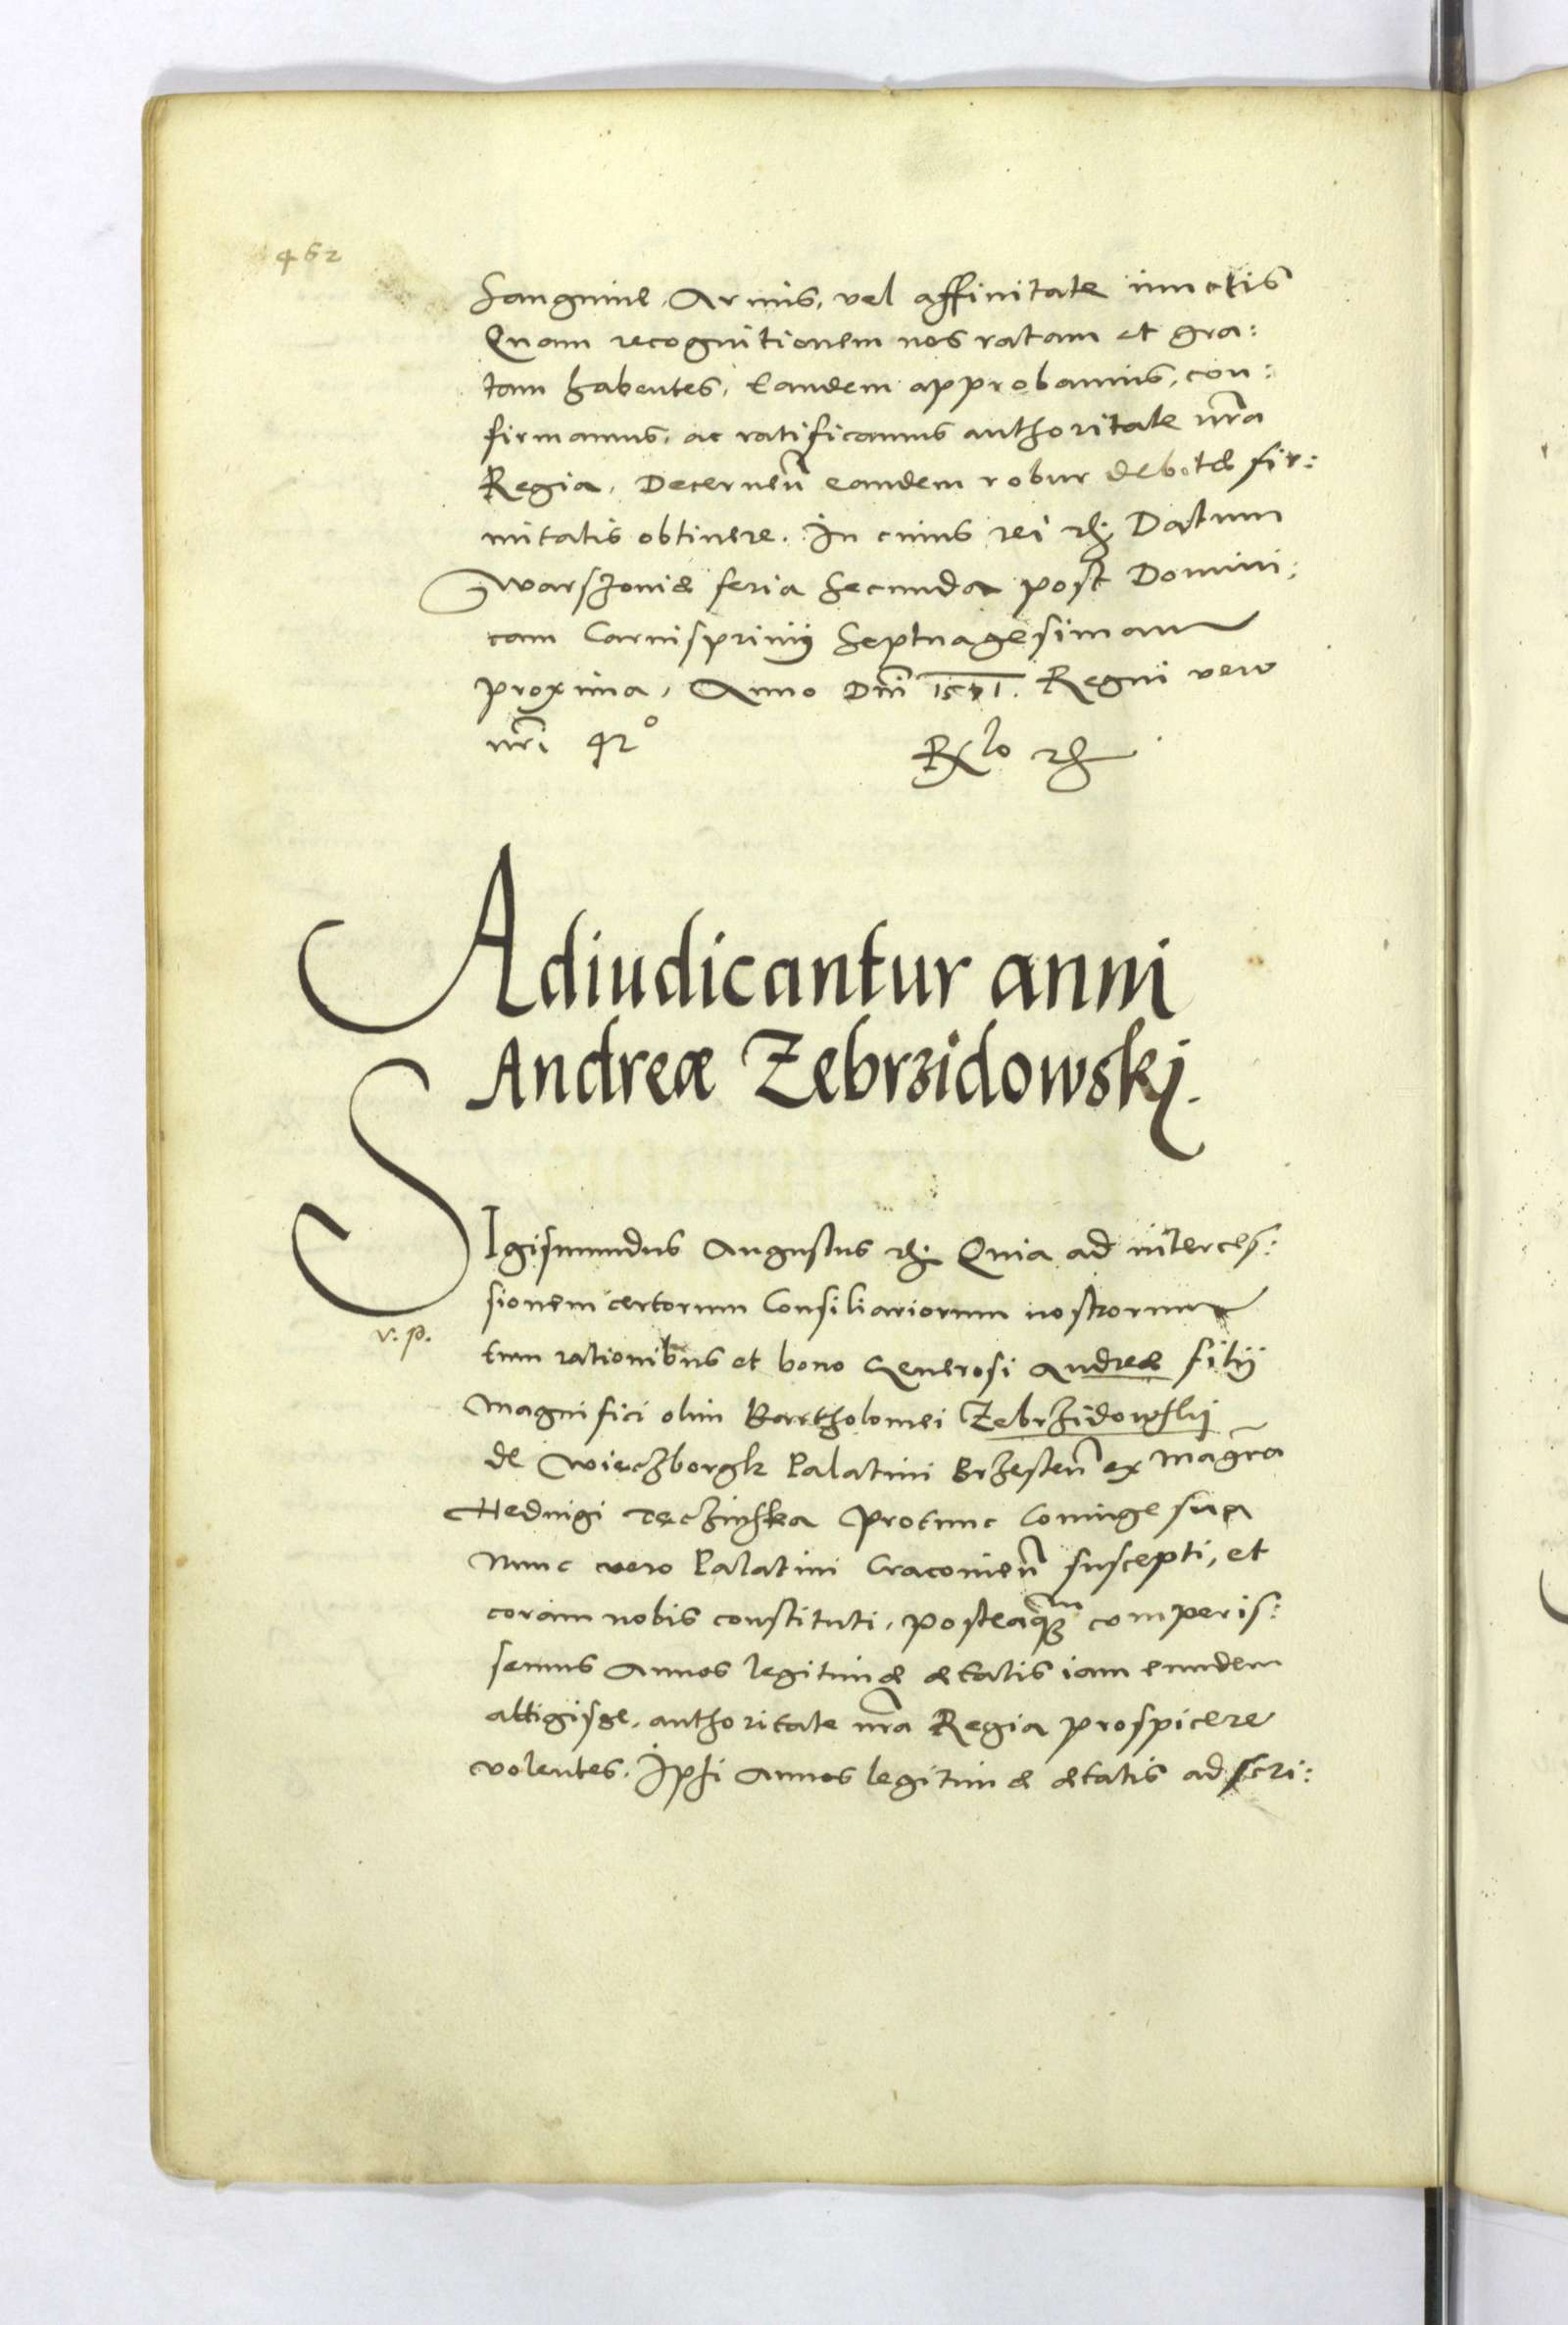 462
Sanguine, Armis, vel affinitate iunctis
Quam recognitionem nos ratam et gra:
tam habentes, Eandem approbamus, con:
firmamus, ac ratificamus authoritate nr̃a
Regia, Decernen̄ eandem robur debitæ fir:
mitatis obtinere. In cuius rei etc̃ Datum
Warszoviæ feria Secunda post Domini:
cam Carnisprivij Septuagesimam
proxima, Anno Dn̄i 1571. Regni vero
nr̃i 42°
Rxlo etc̃
Adiudicantur anni
Andreæ Zebrzidowskj.
SIgismundus Augustus etc̃: Quia ad interces:
sionem certorum Consiliariorum nostrorum
v: p.
tum rationibus et bono Generosi Andreæ filij
Magnifici olim Bartholomei Zebrzidowskij
de Wieczborgk Palatini Brzesten̄ ex Mag̃ca
Hedvigi Teczinska protunc Coniuge sua
Nunc vero Palatini Cracovien̄ suscepti, et
coram nobis constituti, posteaq̃m comperis:
semus Annos legitimæ ætatis iam eundem
attigisse, authoritate nr̃a Regia prospicere
volentes. Ipsi Annos legitimæ ætatis adscri: